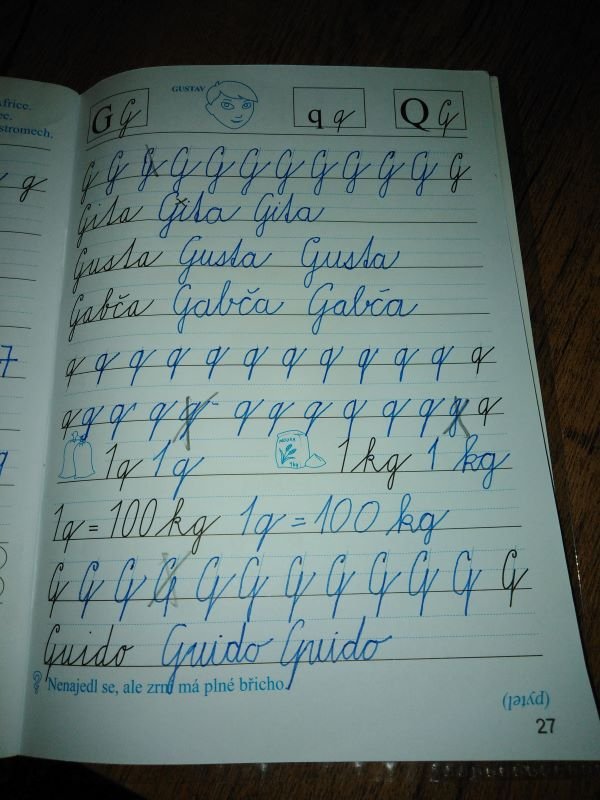 Africe.
stromech.
GUSTAV
G G q q Q Q
G G G G G G G G G G G G
Gita Gita Gita
Gusta Gusta Gusta
Gabča Gabča Gabča
q q q q q q q q q q q q
q q q q q q q q q q q q q
1q 1q MOUKA 1kg 1kg 1 kg
1q = 100 kg 1q = 100 kg
Q Q Q Q Q Q Q Q Q Q Q Q
Quido Quido Quido
Nenajedl se, ale zrní má plné břicho.
(pytel)
27